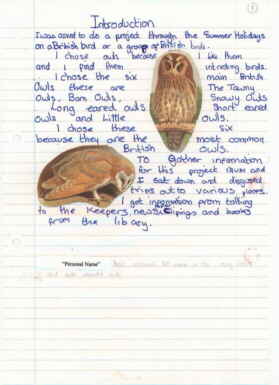 1
Introduction
I was asked to do a project through the Summer Holidays
on a British bird or a group of British birds.
I chose owls because I like them
and I find them intresting birds.
I chose the six main British
Owls these are The Tawny
Owls, Barn Owls, Snowy Owls
Long eared owls Short eared
Owls and Little Owls.
I chose these six
because they are the most common
British Owls.
To Gather information
for this project Mum and
I sat down and
trips out to various places.
I get information from talking
to the Keepers, news clipings and books
from the library.
"Personal Name"